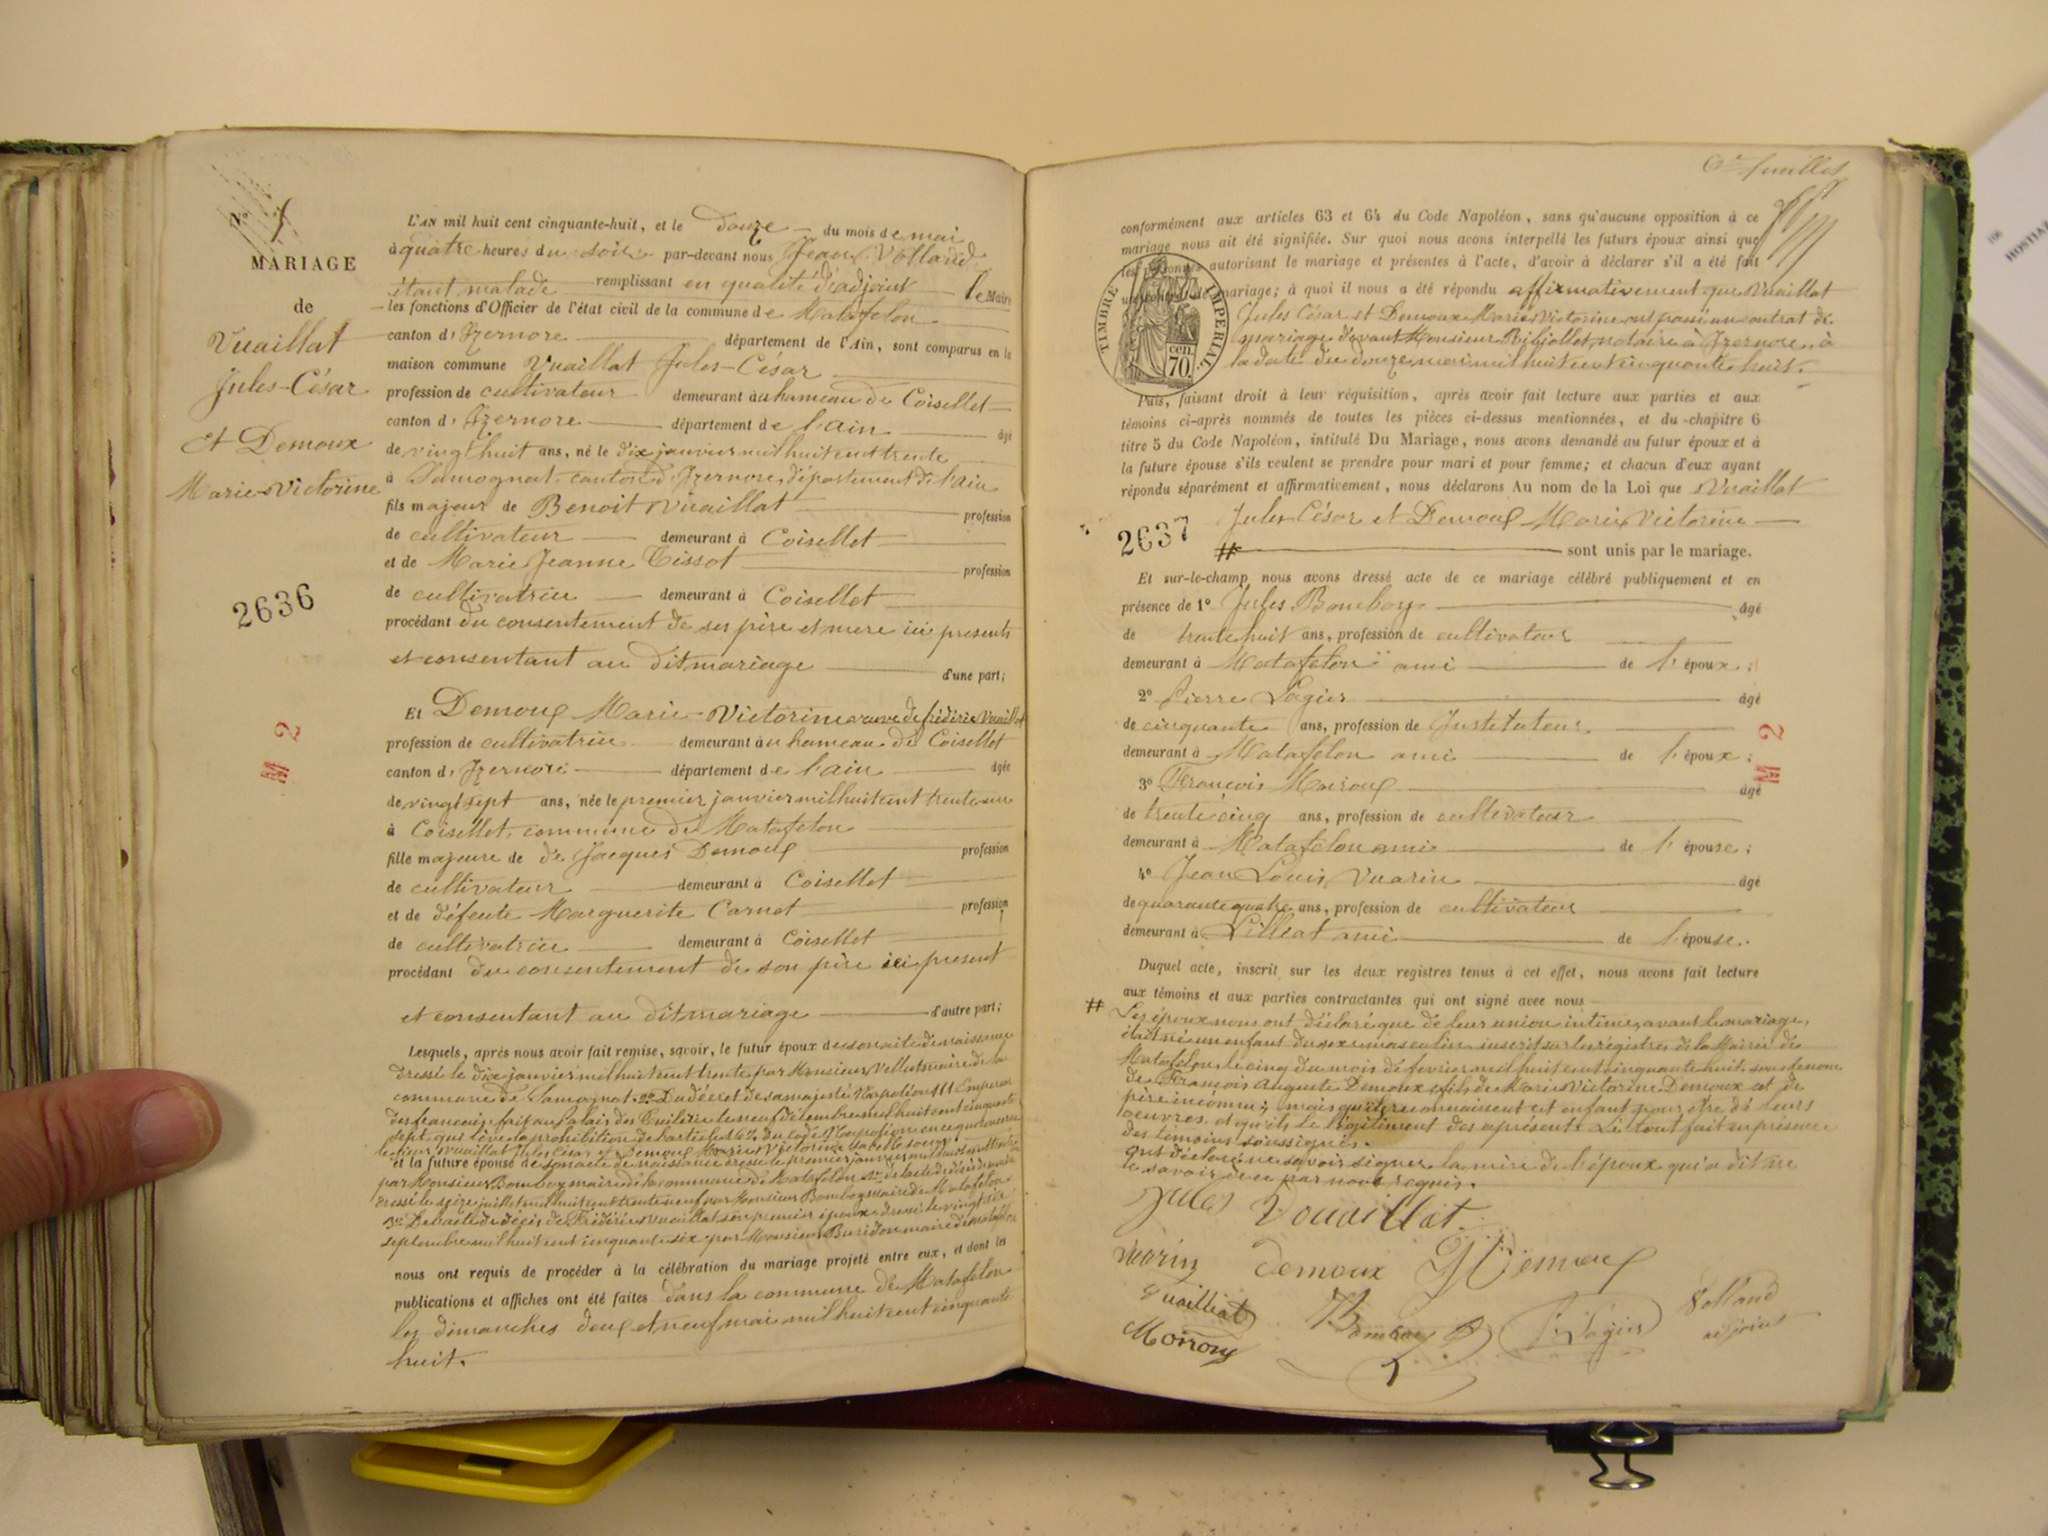 N°
MARIAGE
de
Vuaillat
Jules-César
et Demoux
Marie-Victorine
2636
M 2
L'AN mil huit cent cinquante-huit, et le Douze du mois de mai
à quatre heures du soir par-devant nous Jean Volland
étant malade remplissant en qualité d'adjoint le Maire
les fonctions d'Officier de l'état civil de la commune de Matafelon
canton d'Izernore département de l'Ain, sont comparus en la
maison commune Vuaillat Jules-César
profession de cultivateur demeurant au hameau de Coisellet
canton d'Izernore département de l'ain âgé
de vingt huit ans, né le dix janvier mil huit cent trente
à Samognat canton d'Izernore, département de l'ain
fils majeur de Benoit Vuaillat profession
de cultivateur demeurant à Coisellet
et de Marie Jeanne Tissot profession
de cultivatrice demeurant à Coisellet
procédant du consentement de ses père et mere ici presents
et consentant au dit mariage d'une part;
Et Demoux Marie-Victorine veuve de frédéric Vuaillat
profession de cultivatrice demeurant au hameau de Coisellet
canton d'Izernore département de l'ain âgée
de vingt sept ans, née le premier janvier mil huit cent trente un
à Coisellet, commune de Matafelon
fille majeure de de Jacques Demoux profession
de cultivateur demeurant à Coisellet
et de défeute Marguerite Carnet profession
de cultivatrice demeurant à Coisellet
procédant du consentement de son père ici present
et consentant au dit mariage d'autre part;
Lesquels, après nous avoir fait remise, savoir, le futur époux de son acte de naissance
dressé le dix janvier mil huit cent trente par Monsieur Vellet maire de la
commune de Samognat. 2° Du décret de sa majesté Napoléon III Empereur
des francais fait au Palais des Tuilerie le neuf décembre mil huit cent cinquante
sept qui lève la prohibition de l'article 162 du code Napoléon en ce qui concerne
le sieur Vuaillat Jules César et Demoux Marie Victorine sa belle soeur
et la future épouse de son acte de naissance dressé le premier janvier mil huit cent trente
par Monsieur Bomboy maire de la commune de Matafelon 2° de l'acte de décès de sa mère
dressé le seize juillet mil huit cent trente neuf par Monsieur Bomboy maire de Matafelon
3° De l'acte de décès de Frédéric Vuaillat son premier époux dressé le vingt six
septembre mil huit cent cinquante six par Monsieur Buridon maire de matafelon
nous ont requis de procéder à la célébration du mariage projeté entre eux, et dont les
publications et affiches ont été faites dans la commune de Matafelon
les dimanches deux et neuf mai mil huit cent cinquante
huit.
conformément aux articles 63 et 64 du Code Napoléon, sans qu'aucune opposition à ce
mariage nous ait été signifiée. Sur quoi nous avons interpellé les futurs époux ainsi que
les personnes autorisant le mariage et présentes à l'acte, d'avoir à déclarer s'il a été fait
un contrat de mariage; à quoi il nous a été répondu affirmativement que Vuaillat
Jules César et Demoux Marie Victorine ont passé un contrat de
mariage devant Monsieur notaire à Izernore, à
la date du douze mai mil huit cent cinquante huit.
TIMBRE IMPÉRIAL
70 cen.
Puis, faisant droit à leur réquisition, après avoir fait lecture aux parties et aux
témoins ci-après nommés de toutes les pièces ci-dessus mentionnées, et du chapitre 6
titre 5 du Code Napoléon, intitulé Du Mariage, nous avons demandé au futur époux et à
la future épouse s'ils veulent se prendre pour mari et pour femme; et chacun d'eux ayant
répondu séparément et affirmativement, nous déclarons Au nom de la Loi que Vuaillat
Jules César et Demoux Marie Victorine
2637
# sont unis par le mariage.
Et sur-le-champ nous avons dressé acte de ce mariage célébré publiquement et en
présence de 1° Jules Bomboy âgé
de trente huit ans, profession de cultivateur
demeurant à Matafelon ami de l'époux;
2° Pierre Lagier âgé
de cinquante ans, profession de Instituteur
demeurant à Matafelon ami de l'époux;
M 2
3° François Moiroux âgé
de trente cinq ans, profession de cultivateur
demeurant à Matafelon ami de l'épouse;
4° Jean Louis Vuarin âgé
de quarante quatre ans, profession de cultivateur
demeurant à Lilleat ami de l'épouse.
Duquel acte, inscrit sur les deux registres tenus à cet effet, nous avons fait lecture
aux témoins et aux parties contractantes qui ont signé avec nous
# Les époux nous ont déclaré que de leur union intime, avant le mariage,
était né un enfant du sexe masculin inscrit sur les régistres de la Mairie de
Matafelon, le cinq du mois de fevrier mil huit cent cinquante huit, sous le nom
de François Auguste Demoux fils de Marie Victorine Demoux et de
père inconnu; mais qu'ils reconnaissent cet enfant pour être dé leurs
oeuvres, et qu'ils le légitiment dès àprésent. Le tout fait en présence
des témoins soussignés.
ont déclaré ne savoir signer la mère de l'époux qui a dit ne
le savoir de ce par nous requis.
Jules Vouaillat
Vuarin demoux JJ Demoux
Vuailliat Bomboy P. Lagier Volland
adjoint
Moiroux